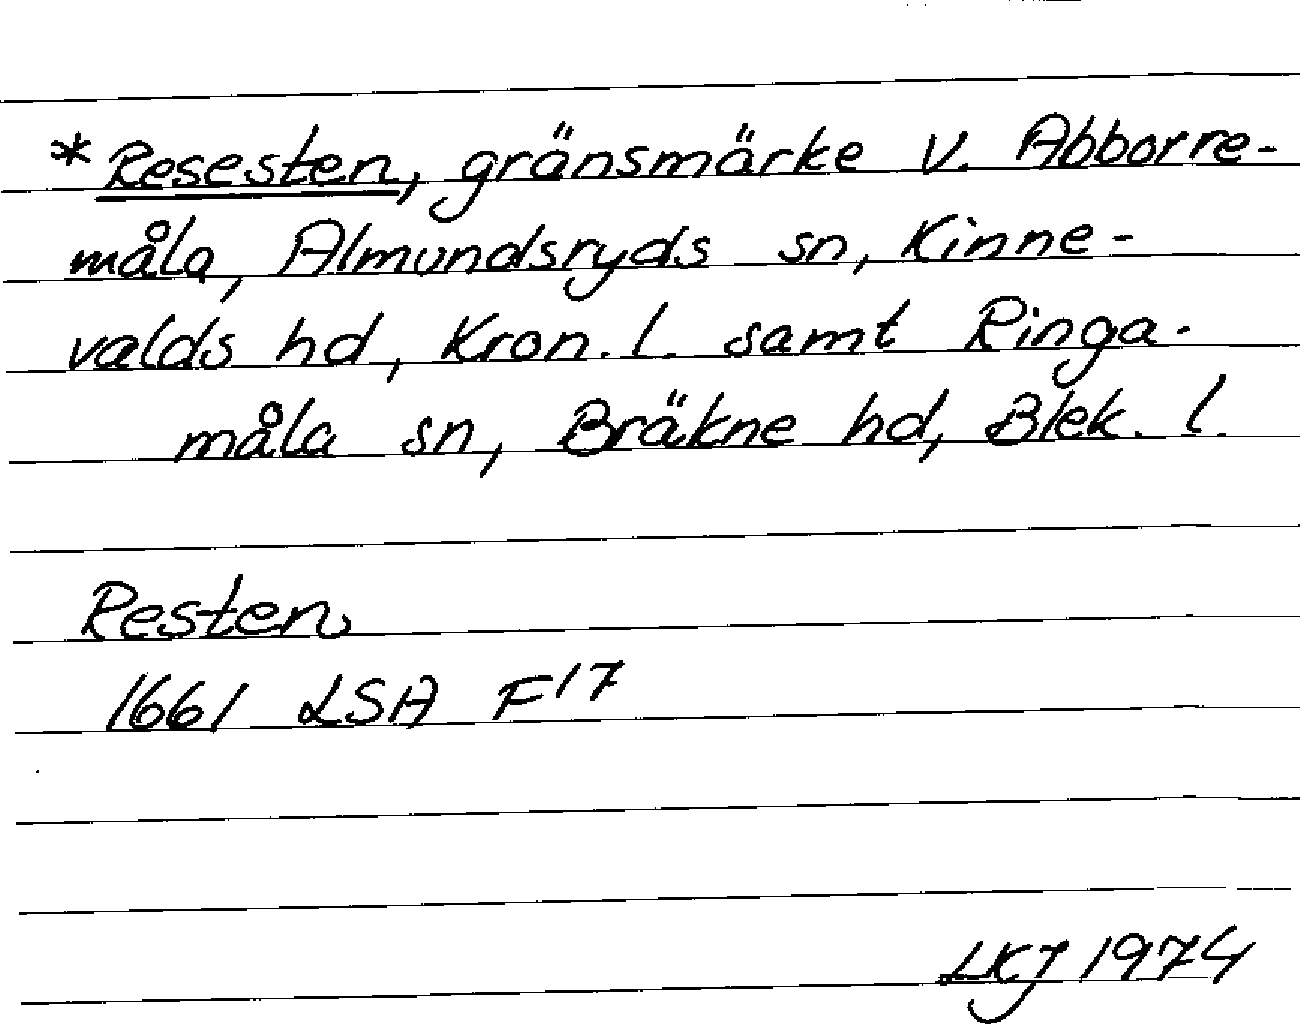 *Resesten, gränsmärke v. Abborre-
måla, Almundsryds sn, Kinne-
valds hd, Kron. l. samt Ringa-
måla sn, Bräkne hd, Blek. l.
Resten
1661 LSA F17
LKJ 1974